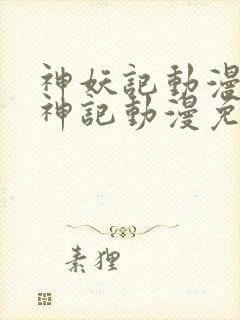 神妖記動漫
神記動漫免
素狸